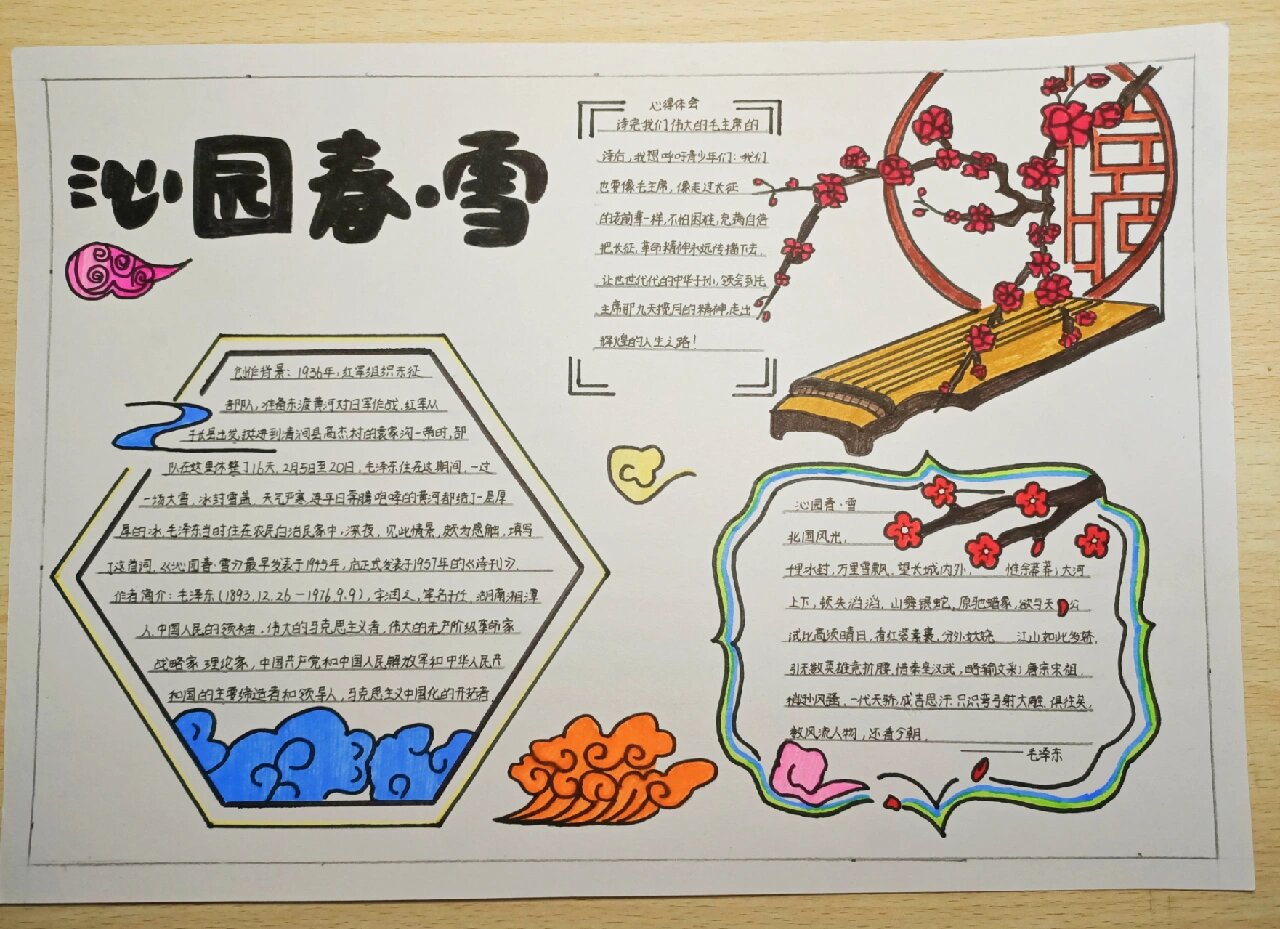 沁园春·雪
心得体会
读完我们伟大的毛主席的
诗后，我想呼吁青少年们：我们
也要像毛主席，像走过长征
的老前辈一样，不怕困难，充满自信
把长征，革命精神永远传播下去，
让世世代代的中华子孙，领会到毛
主席那九天揽月的精神，走出
辉煌的人生之路！
创作背景：1936年，红军组织东征
部队，准备东渡黄河对日军作战，红军从
子长县出发，挺进到清涧县高杰村的袁家沟一带时，部
队在这里休整了16天，2月5日至20日，毛泽东住在这期间，一过
一场大雪，冰封雪盖，天气严寒，连平日奔腾咆哮的黄河都结了一层厚
厚的冰，毛泽东当时住在农民白治民家中，深夜，见此情景，颇为感触，填写
了这首词，《沁园春·雪》最早发表于1945年，后正式发表于1957年的《诗刊》。
作者简介：毛泽东（1893.12.26—1976.9.9），字润之，笔名子任，湖南湘潭
人，中国人民的领袖，伟大的马克思主义者，伟大的无产阶级革命家
战略家 理论家，中国共产党和中国人民解放军和中华人民共
和国的主要缔造者和领导人，马克思主义中国化的开拓者。
沁园春·雪
北国风光，
千里冰封，万里雪飘。望长城内外，惟余莽莽；大河
上下，顿失滔滔，山舞银蛇，原驰蜡象，欲与天公
试比高须晴日，看红装素裹，分外妖娆 江山如此多娇，
引无数英雄竞折腰，惜秦皇汉武，略输文采；唐宗宋祖
稍逊风骚，一代天骄，成吉思汗，只识弯弓射大雕，俱往矣，
数风流人物，还看今朝。
——毛泽东